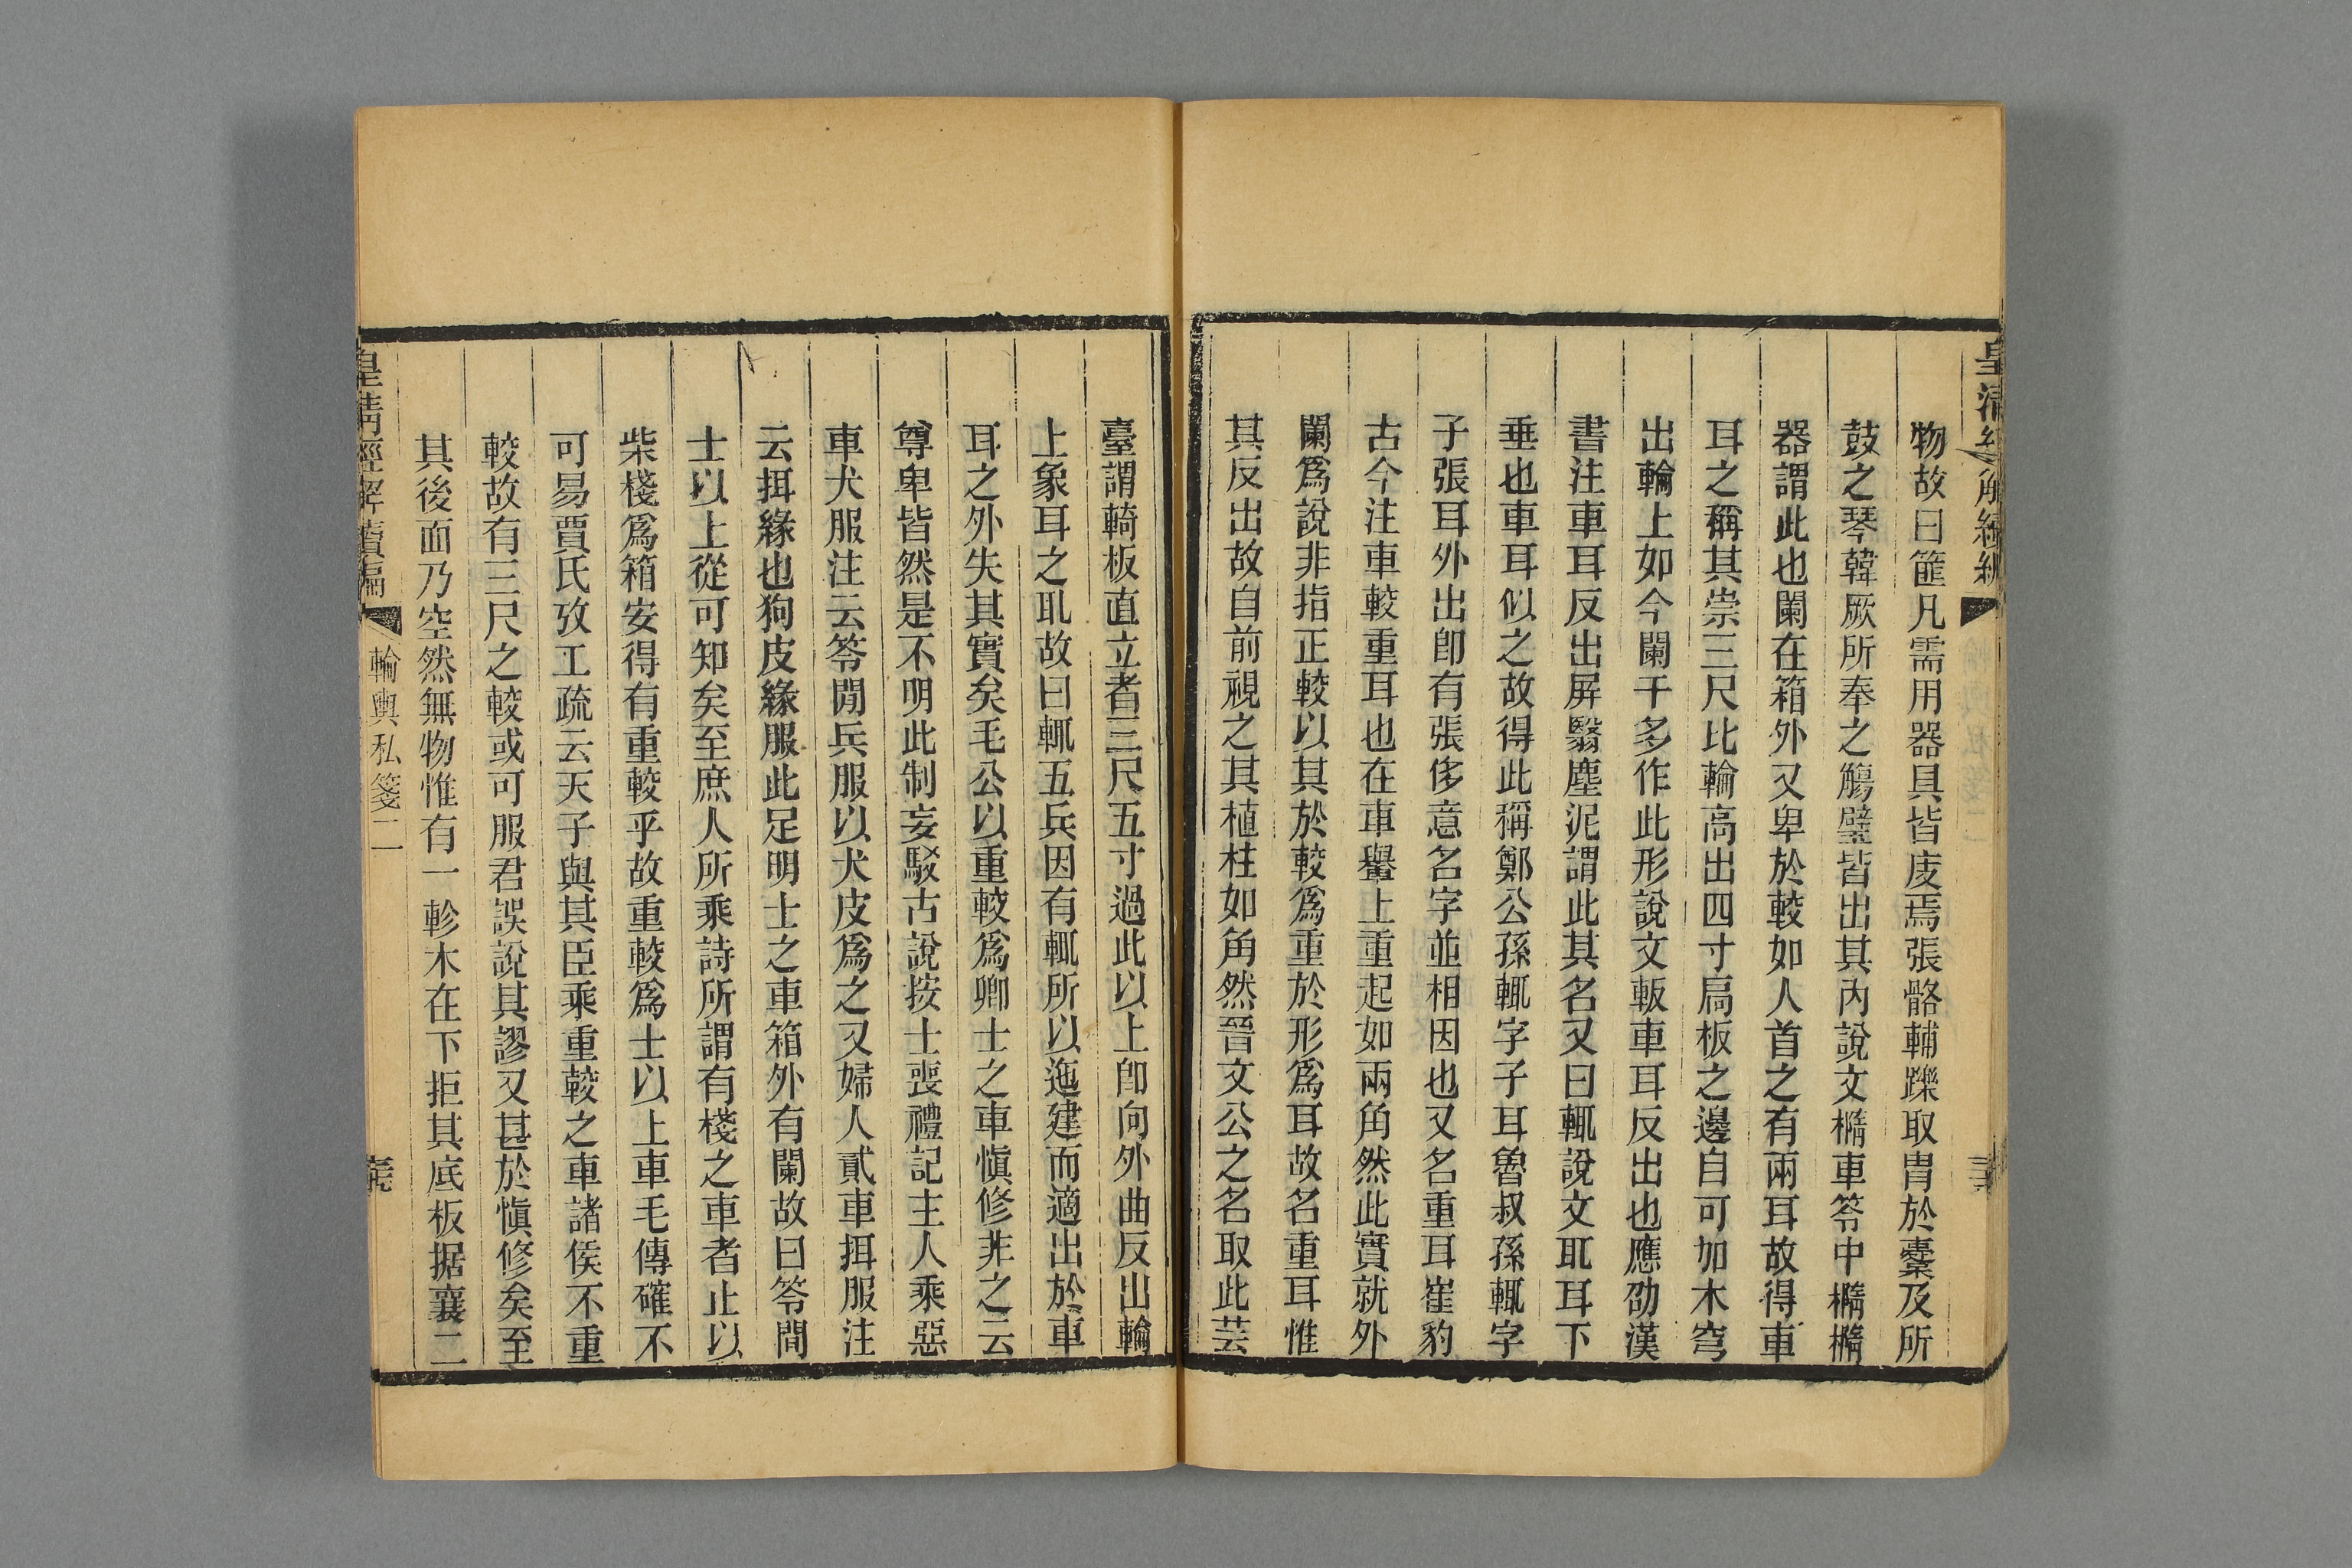 物故曰篚凡需用器具皆庋焉張骼輔躒取胄於櫜及所
鼓之琴韓厥所奉之觴璧皆出其內說文橢車笭中橢橢
器謂此也闌在箱外又卑於較如人首之有兩耳故得車
耳之稱其崇三尺比輪高出四寸扃板之邊自可加木穹
出輪上如今闌干多作此形說文軓車耳反出也應劭漢
書注車耳反出屏翳塵泥謂此其名又曰輒說文耴耳下
垂也車耳似之故得此稱鄭公孫輒字子耳魯叔孫輒字
子張耳外出卽有張侈意名字並相因也又名重耳崔豹
古今注車較重耳也在車轝上重起如兩角然此實就外
闌爲說非指正較以其於較爲重於形爲耳故名重耳惟
其反出故自前視之其植柱如角然晉文公之名取此芸
臺謂輢板直立者三尺五寸過此以上卽向外曲反出輪
上象耳之耴故曰輒五兵因有輒所以迤建而適出於車
耳之外失其實矣毛公以重較爲卿士之車愼修非之云
尊卑皆然是不明此制妄駁古說按士喪禮記主人乘惡
車犬服注云笭閒兵服以犬皮爲之又婦人貳車㧡服注
云㧡緣也狗皮緣服此足明士之車箱外有闌故曰笭間
士以上從可知矣至庶人所乘詩所謂有棧之車者止以
柴棧爲箱安得有重較乎故重較爲士以上車毛傳確不
可易賈氏攷工疏云天子與其臣乘重較之車諸侯不重
較故有三尺之較或可服君誤說其謬又甚於愼修矣至
其後面乃空然無物惟有一軫木在下拒其底板据襄二
皇清經解續編
輪輿私箋二